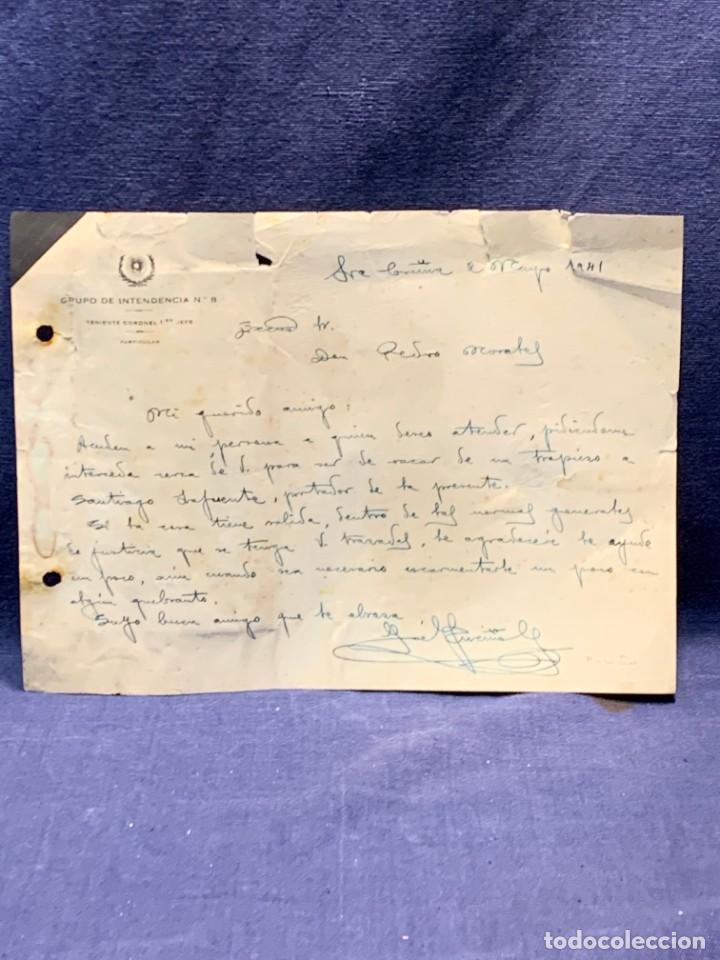 La Coruña 2 Mayo 1941
GRUPO DE INTENDENCIA N.º 8
TENIENTE CORONEL 1.er JEFE
PARTICULAR
Sr.
Don Pedro Morales
Mi querido amigo:
Acuden a mi persona a quien deseo atender, pidiéndome
interceda cerca de V. para ver de sacar de un tropiezo a
Santiago Lafuente, portador de la presente.
Si la cosa tiene salida, dentro de las normas generales
de justicia que se tenga V. trazadas, le agradeceré le ayude
un poco, aún cuando sea necesario escarmentarle un poco con
algún quebranto.
Suyo buen amigo que le abraza
todocoleccion